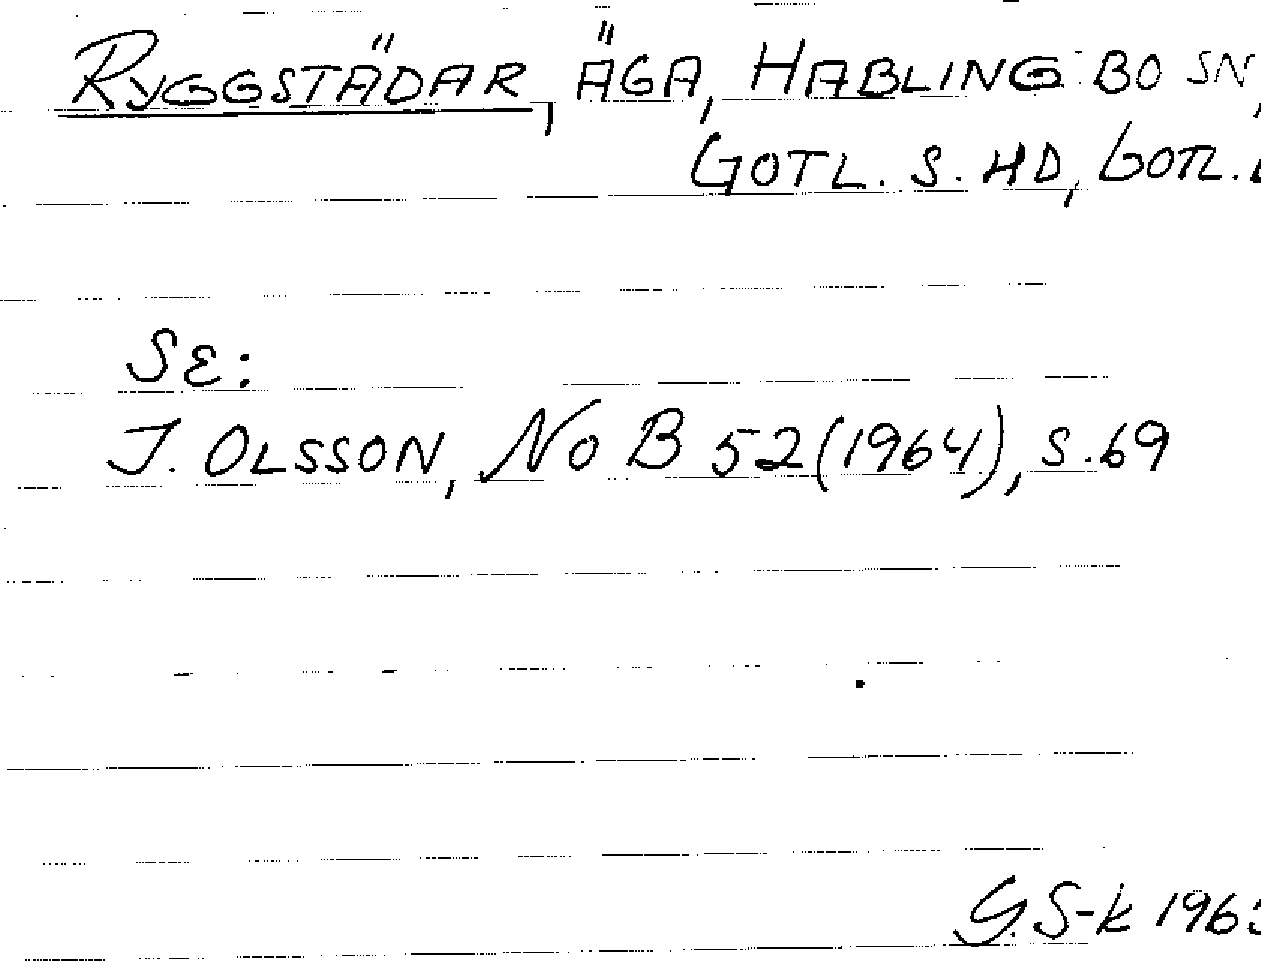 RYGGSTÄDAR, ÄGA, HABLINGBO SN,
GOTL. S. HD, GOTL.
SE:
J. OLSSON, NoB 52 (1964), S. 69
G. S-k